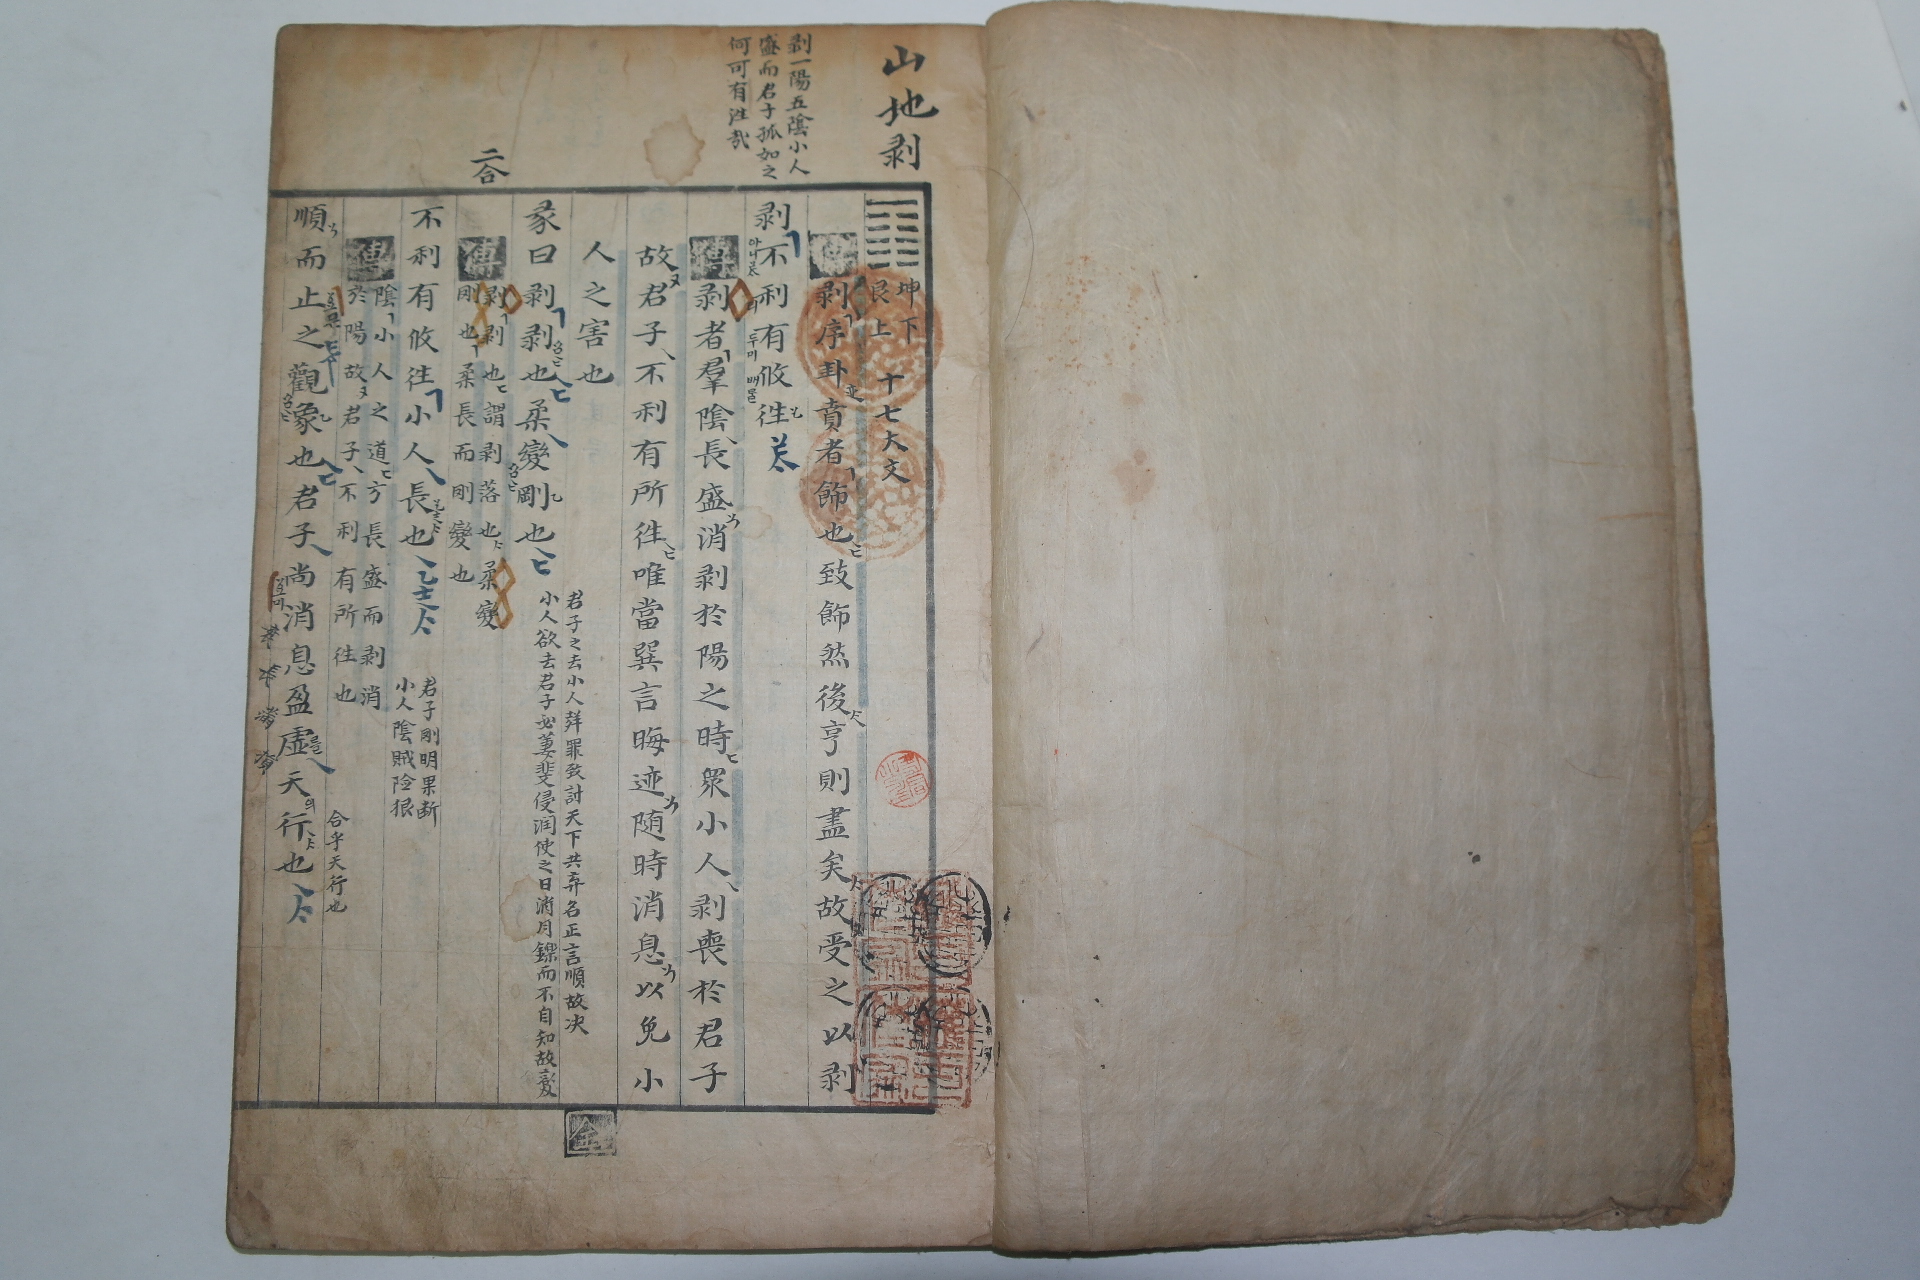 山地剥
剥一陽五陰小人
盛而君子孤如之
何可有徃哉
二合
坤下
艮上
十七大文
傳 剥序卦賁者飾也致飾然後亨則盡矣故受之以剥
剥不利有攸徃
傳 剥者羣陰長盛消剥於陽之時衆小人剥喪於君子
故君子不利有所徃唯當巽言晦迹随時消息以免小
人之害也
彖曰剥剥也柔變剛也
君子之去小人
罪致討天下共弃名正言順故决
小人欲去君子必萋斐侵润使之日消月鑠而不自知故變
傳 剥剥也謂剥落也柔變
剛也柔長而剛變也
不利有攸徃小人長也
君子剛明果断
小人陰賊险狠
傳 陰小人之道方長盛而剥消
於陽故君子不利有所徃也
順而止之觀象也君子尚消息盈虚天行也
合乎天行也